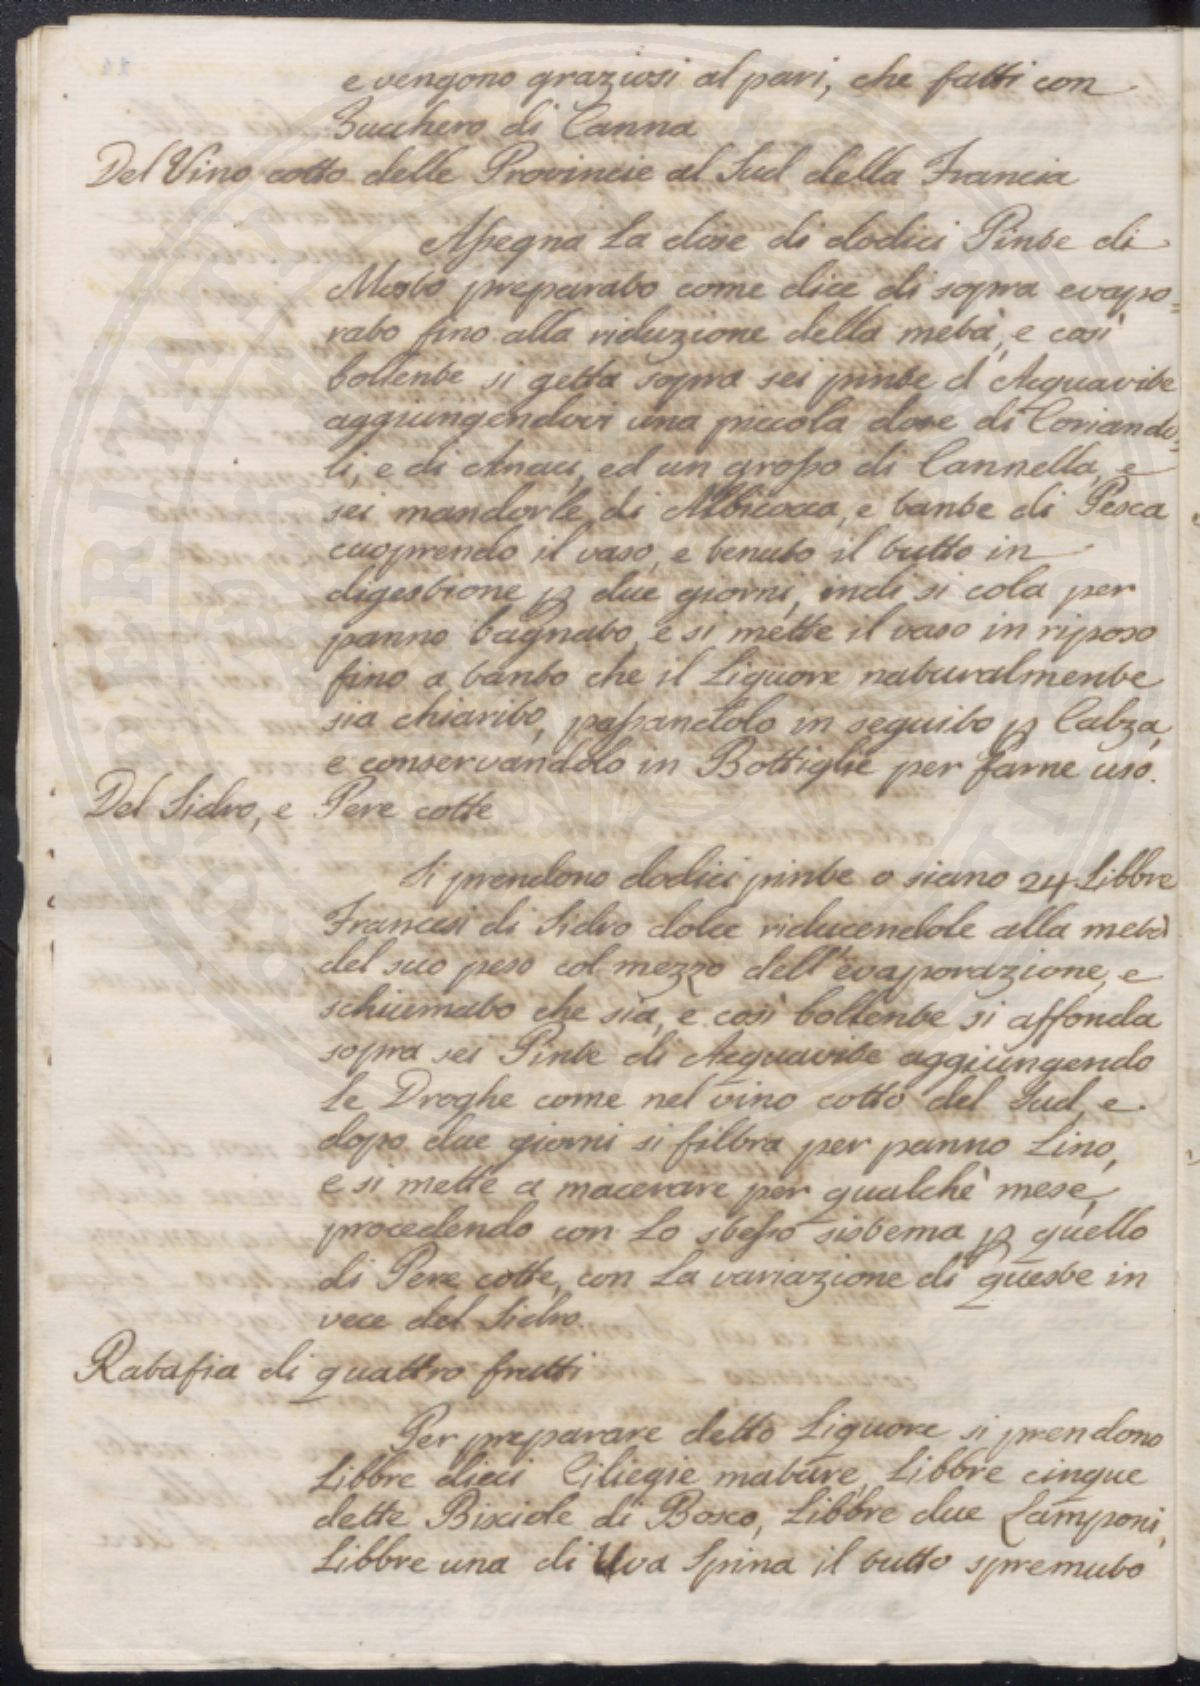 e vengono graziosi al pari, che fatti con
Zucchero di Canna
Del Vino cotto delle Provincie al Sud della Francia
Assegna la dose di dodici Pinte di
Mosto preparato come dice di sopra evapo-
rato fino alla riduzione della metà, e così
bollente si getta sopra sei pinte d'Acquavite
aggiungendovi una piccola dose di Coriando-
li, e di Anaci, ed un grosso di Cannella, e
sei mandorle di Albicocca, e tante di Pesca
cuoprendo il vaso, e tenuto il tutto in
digestione p due giorni, indi si cola per
panno bagnato, e si mette il vaso in riposo
fino a tanto che il Liquore naturalmente
sia chiarito, passandolo in seguito p Calza,
e conservandolo in Bottiglie per farne uso.
Del Sidro, e Pere cotte
Si prendono dodici pinte o siano 24 Libbre
Francesi di Sidro dolce riducendole alla metà
del suo peso col mezzo dell'evaporazione, e
schiumato che sia, e così bollente si affonda
sopra sei Pinte di Acquavite aggiungendo
le Droghe come nel vino cotto del Sud, e
dopo due giorni si filtra per panno Lino,
e si mette a macerare per qualchè mese,
procedendo con lo stesso sistema p quello
di Pere cotte, con la variazione di queste in
vece del Sidro.
Ratafia di quattro frutti
Per preparare detto Liquore si prendono
Libbre dieci Ciliegie mature, Libbre cinque
dette Bisciole di Bosco, Libbre due Lamponi,
Libbre una di Uva Spina il tutto spremuto